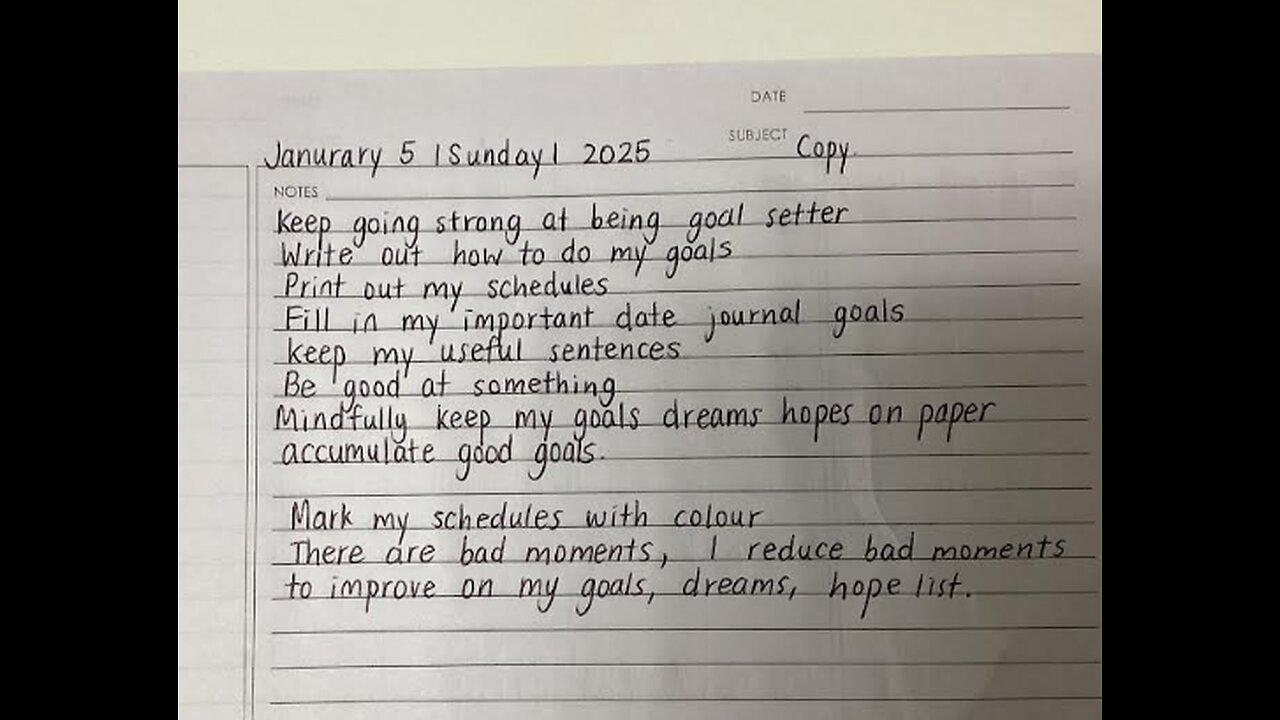 DATE
SUBJECT Copy.
Janurary 5 | Sunday | 2025
NOTES
Keep going strong at being goal setter
Write out how to do my goals
Print out my schedules
Fill in my important date journal goals
keep my useful sentences
Be good at something
Mindfully keep my goals dreams hopes on paper
accumulate good goals.
Mark my schedules with colour
There are bad moments, I reduce bad moments
to improve on my goals, dreams, hope list.